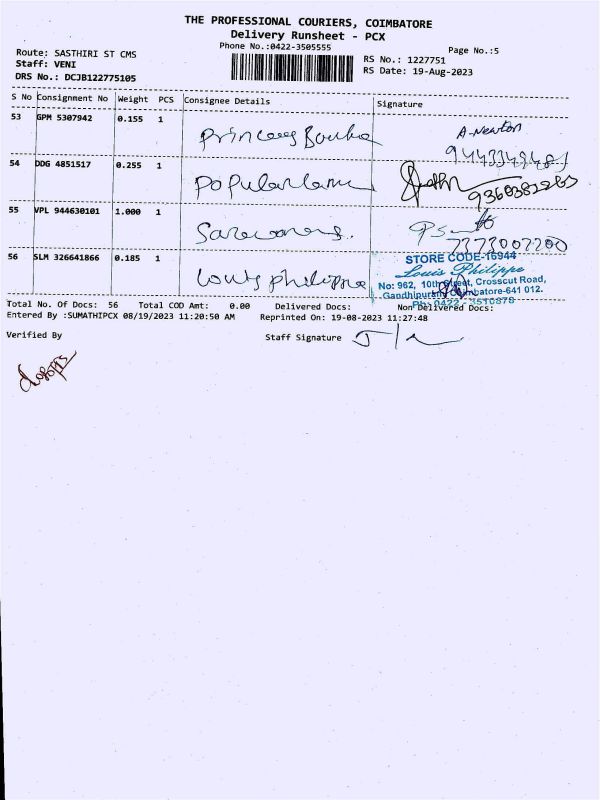 THE PROFESSIONAL COURIERS, COIMBATORE
Delivery Runsheet - PCX
Phone No.:0422-3505555
Page No.:5
Route: SASTHIRI ST CMS
Staff: VENI
DRS No.: DCJB122775105
RS No.: 1227751
RS Date: 19-Aug-2023
S No Consignment No Weight PCS Consignee Details Signature
53 GPM 5307942 0.155 1 A-Newton
54 DDG 4851517 0.255 1 Popular
55 VPL 944630101 1.000 1
7373007200
56 SLM 326641866 0.185 1 Louis philippe
STORE CODE-16944
Louis Philippe
No: 962, 10th Street, Crosscut Road,
Gandhipuram, Coimbatore-641 012.
Ph: 0422 - 3510878
Total No. Of Docs: 56 Total COD Amt: 0.00 Delivered Docs: Non Delivered Docs:
Entered By :SUMATHIPCX 08/19/2023 11:20:50 AM Reprinted On: 19-08-2023 11:27:48
Verified By Staff Signature